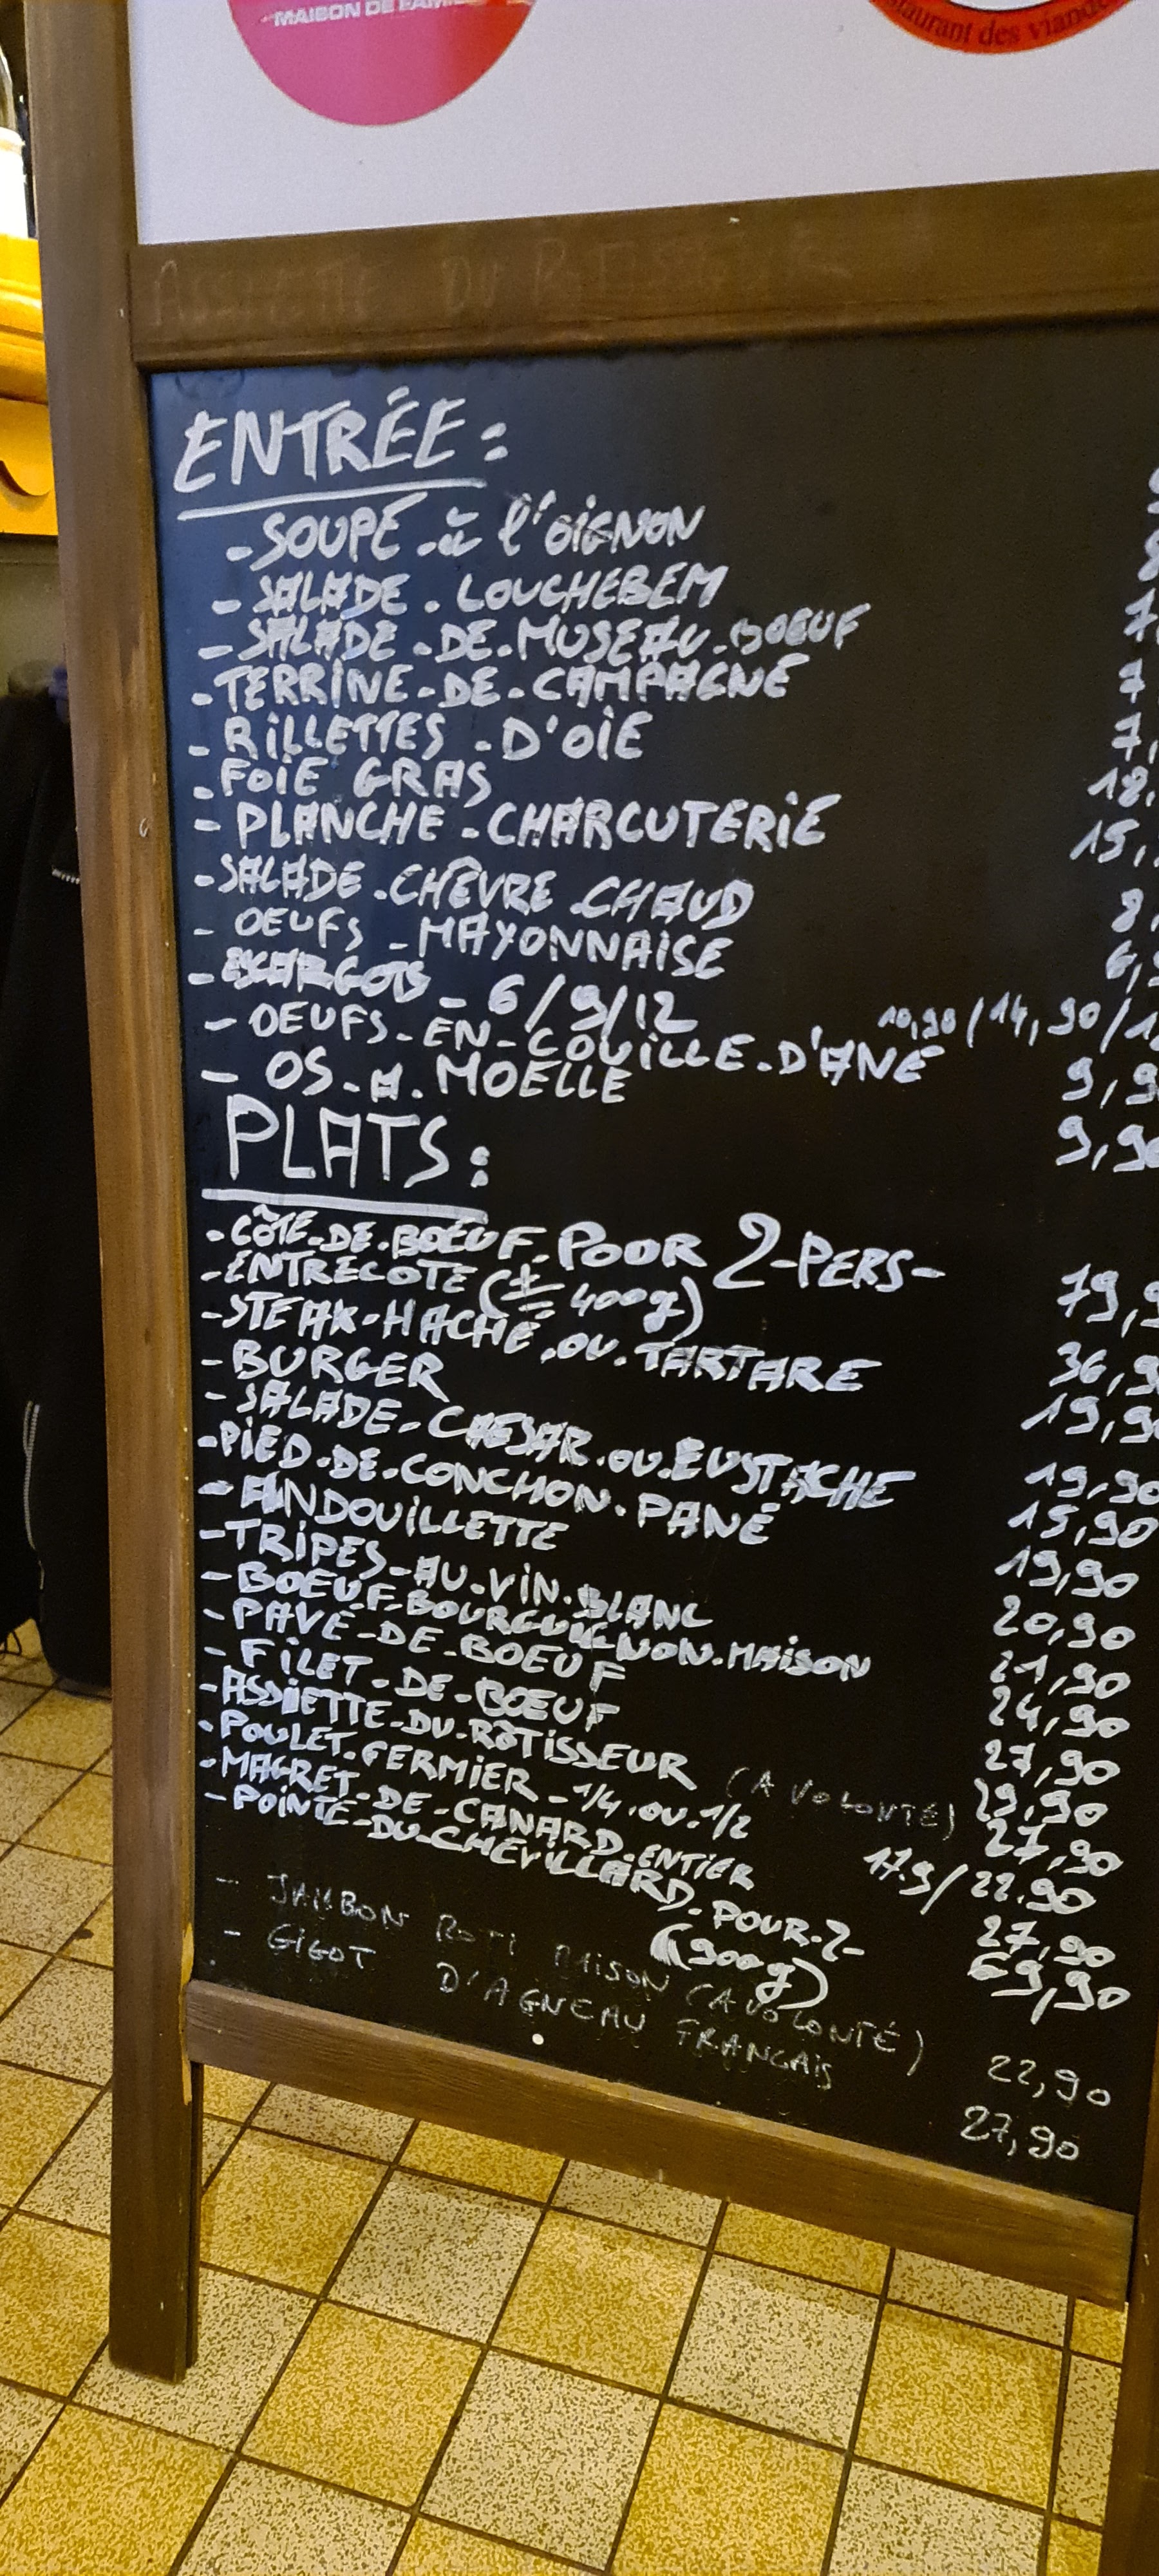 MAISON DE FAMI
staurant des viande
ASSIETTE DU ROTISSEUR
ENTRÉE:
- SOUPE à l'oiGNON
- SALADE. LOUCHEBEM
- SALADE.DE.MUSEAU.BOEUF 7,
- TERRINE-DE-CAMPAGNE 7
- RiLLETTES-D'OiE 7,
- FOiE GRAS 18,
- PLANCHE-CHARCUTERiE 15,
- SALADE.CHÈVRE.CHAUD 8,
- OEUFS-MAYONNAiSE 6,9
- ESCARGOTS - 6/9/12 10,90/14,90/1
- OEUFS-EN-COUiLLE.D'ANE 9,9
- OS.A.MOELLE 9,90
PLATS:
- CÔTE.DE.BOEUF.POUR 2-PERS- 79,9
- ENTRECOTE (± 400g) 36,9
- STEAK-HACHE.OU.TARTARE 19,90
- BURGER 19,90
- SALADE-CAESAR.OU.EUSTACHE 15,90
- PiED.DE.CONCHON.PANÉ 19,90
- ANDOUiLLETTE 20,90
- TRiPES-AU.ViN.BLANC 21,90
- BOEUF.BOURGUIGNON.MAiSON 24,90
- PAVE-DE-BOEUF 27,90
- FiLET-DE-BOEUF 29,90
- ASSiETTE-DU-RÔTiSSEUR (A VOLONTÉ) 27,90
- POULET-FERMiER-1/4.OU.1/2 17.9/22.90
- MAGRET-DE-CANARD.ENTiER 27,90
- POiNTE-DU-CHEViLLARD.POUR-2- 69,90
(900g)
- JAMBON ROTI MAISON (A VOLONTÉ) 22,90
- GiGOT D'AGNEAU FRANCAiS 27,90